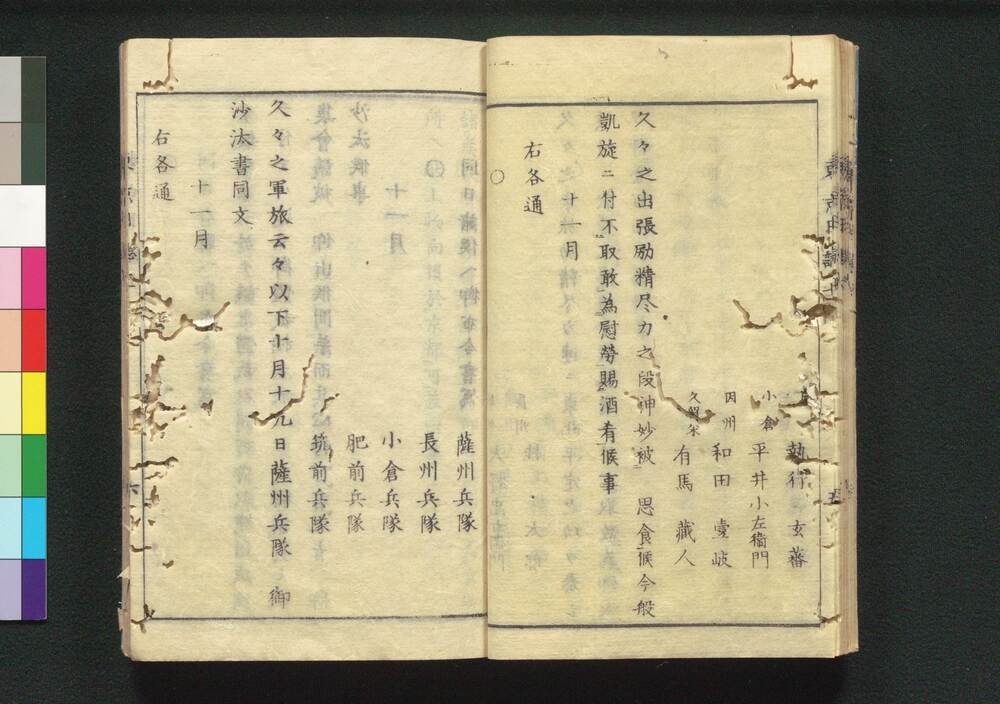 執行 玄蕃
小倉 平井小左衛門
因州 和田 壹岐
久留米 有馬 藏人
久々之出張励精尽力之段神妙被 思食候今般
凱旋ニ付不取敢為慰勞賜酒肴候事
十一月
右各通
○
薩州兵隊
長州兵隊
小倉兵隊
肥前兵隊
筑前兵隊
久々之軍旅云々以下十月十九日薩州兵隊 御
沙汰書同文
十一月
右各通